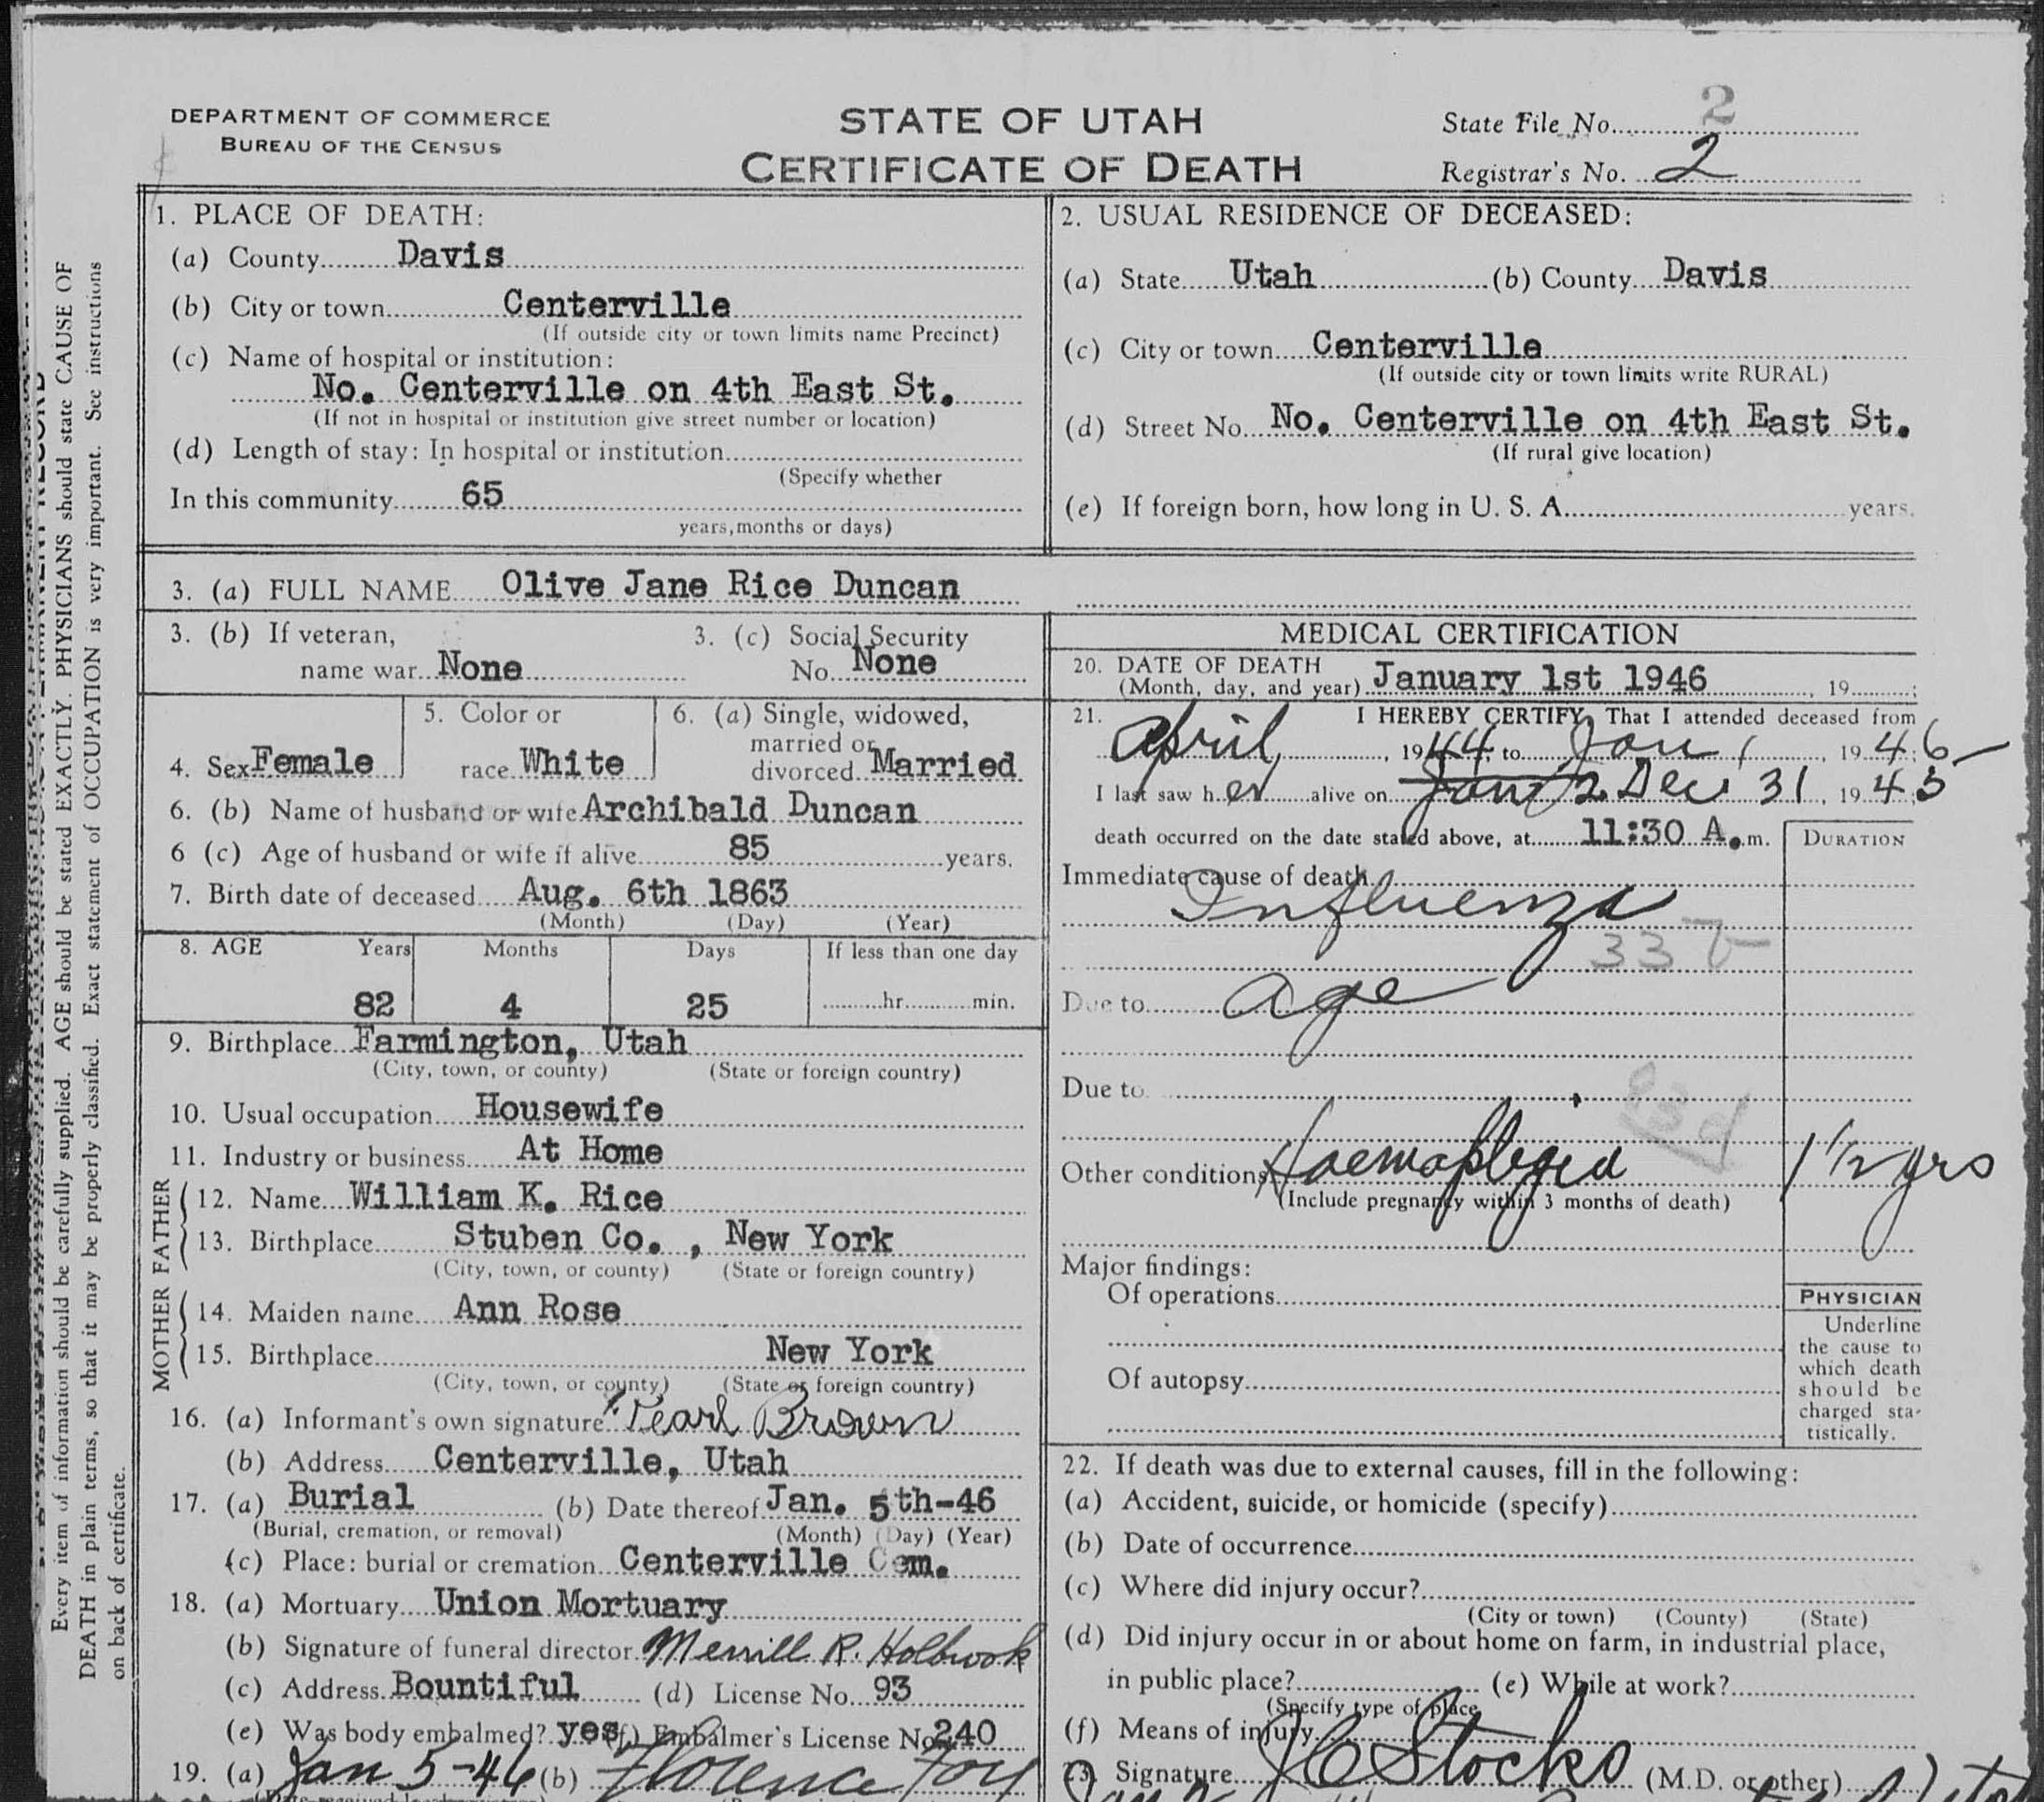 DEPARTMENT OF COMMERCE
BUREAU OF THE CENSUS
STATE OF UTAH
CERTIFICATE OF DEATH
State File No. 2
Registrar's No. 2
Every item of information should be carefully supplied. AGE should be stated EXACTLY. PHYSICIANS should state CAUSE OF
DEATH in plain terms, so that it may be properly classified. Exact statement of OCCUPATION is very important. See instructions
on back of certificate.
1. PLACE OF DEATH:
(a) County Davis
(b) City or town Centerville
(If outside city or town limits name Precinct)
(c) Name of hospital or institution:
No. Centerville on 4th East St.
(If not in hospital or institution give street number or location)
(d) Length of stay: In hospital or institution
(Specify whether
In this community 65
years, months or days)
2. USUAL RESIDENCE OF DECEASED:
(a) State Utah (b) County Davis
(c) City or town Centerville
(If outside city or town limits write RURAL)
(d) Street No. No. Centerville on 4th East St.
(If rural give location)
(e) If foreign born, how long in U. S. A. years.
3. (a) FULL NAME Olive Jane Rice Duncan
3. (b) If veteran,
name war None
3. (c) Social Security
No. None
4. Sex Female
5. Color or
race White
6. (a) Single, widowed,
married or
divorced Married
6. (b) Name of husband or wife Archibald Duncan
6 (c) Age of husband or wife if alive 85 years.
7. Birth date of deceased Aug. 6th 1863
(Month) (Day) (Year)
8. AGE Years Months Days If less than one day
82 4 25 hr. min.
9. Birthplace Farmington, Utah
(City, town, or county) (State or foreign country)
10. Usual occupation Housewife
11. Industry or business At Home
FATHER
12. Name William K. Rice
13. Birthplace Stuben Co. , New York
(City, town, or county) (State or foreign country)
MOTHER
14. Maiden name Ann Rose
15. Birthplace New York
(City, town, or county) (State or foreign country)
16. (a) Informant's own signature Pearl Brown
(b) Address Centerville, Utah
17. (a) Burial (b) Date thereof Jan. 5th-46
(Burial, cremation, or removal) (Month) (Day) (Year)
(c) Place: burial or cremation Centerville Cem.
18. (a) Mortuary Union Mortuary
(b) Signature of funeral director Merrill R. Holbrook
(c) Address Bountiful (d) License No. 93
(e) Was body embalmed? yes (f) Embalmer's License No. 240
19. (a) Jan 5-46 (b) Florence Foy
MEDICAL CERTIFICATION
20. DATE OF DEATH
(Month, day, and year) January 1st 1946, 19 ;
21. I HEREBY CERTIFY, That I attended deceased from
April, 1944, to Jan 1, 1946
I last saw her alive on Jan 2 Dec 31, 1945
death occurred on the date stated above, at 11:30 A.m.
DURATION
Immediate cause of death
Influenza
33
Due to age
Due to
93d
Other conditions Haemaplegia 1 1/2 yrs
(Include pregnancy within 3 months of death)
Major findings:
Of operations
Of autopsy
PHYSICIAN
Underline
the cause to
which death
should be
charged sta-
tistically.
22. If death was due to external causes, fill in the following:
(a) Accident, suicide, or homicide (specify)
(b) Date of occurrence
(c) Where did injury occur?
(City or town) (County) (State)
(d) Did injury occur in or about home on farm, in industrial place,
in public place? (e) While at work?
(Specify type of place
(f) Means of injury
23. Signature J C Stocks (M.D. or other)